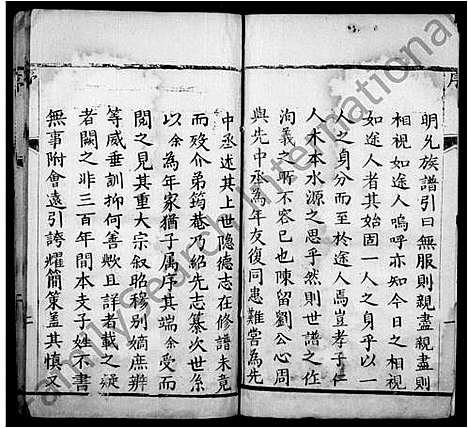 序
明允族譜引曰無服則親盡親盡則
相視如途人嗚呼亦知今日之相視
如途人者其始固一人之身乎以一
人之身分而至於途人焉豈孝子仁
人木本水源之思乎然則世譜之作
洵義之所不容已也陳留劉公心周
與先中丞為年友復同患難嘗為先
中丞述其上世隱德志在修譜未竟
而歿介弟鈞菴乃紹先志纂次世系
以余為年家猶子属序其端余受而
閲之見其重大宗叙昭穆别嫡庶辨
等威垂訓抑何善歟且詳者載之疑
者闕之非三百年間本支子姓不書
無事附會遠引誇耀簡策蓋其慎又
FamilySearch International